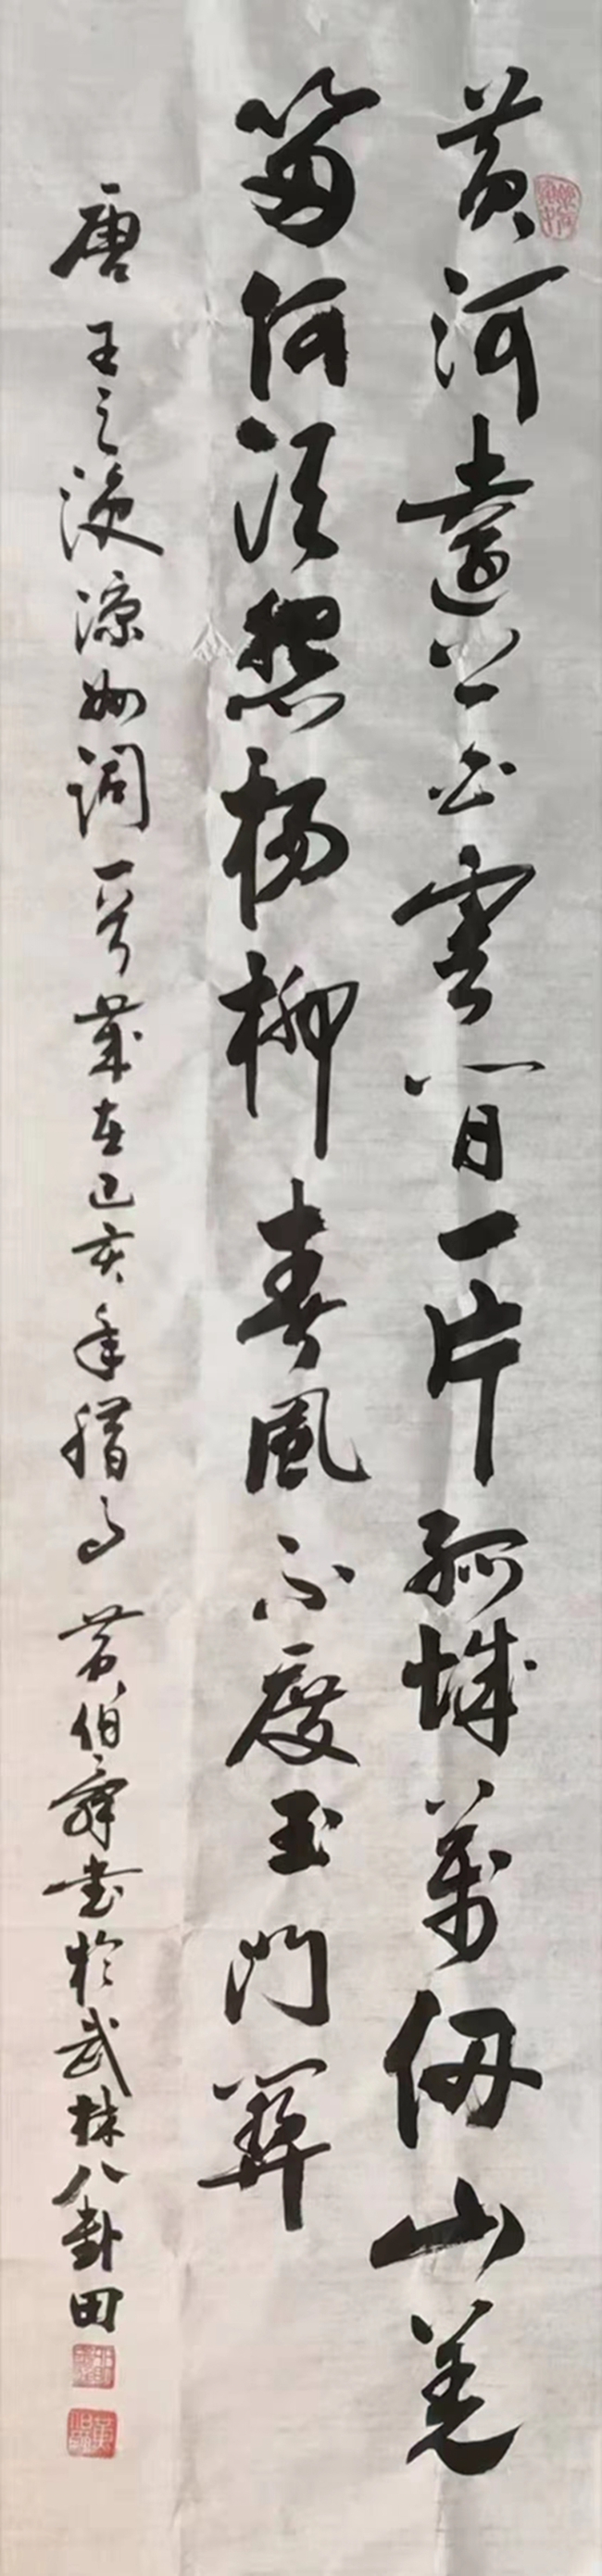 黄河遠上白雲间一片孤城萬仞山羌
笛何須怨楊柳春風不度玉門関
唐王之渙凉州词一首歲在己亥年腊月黄伯舜書於武林八卦田